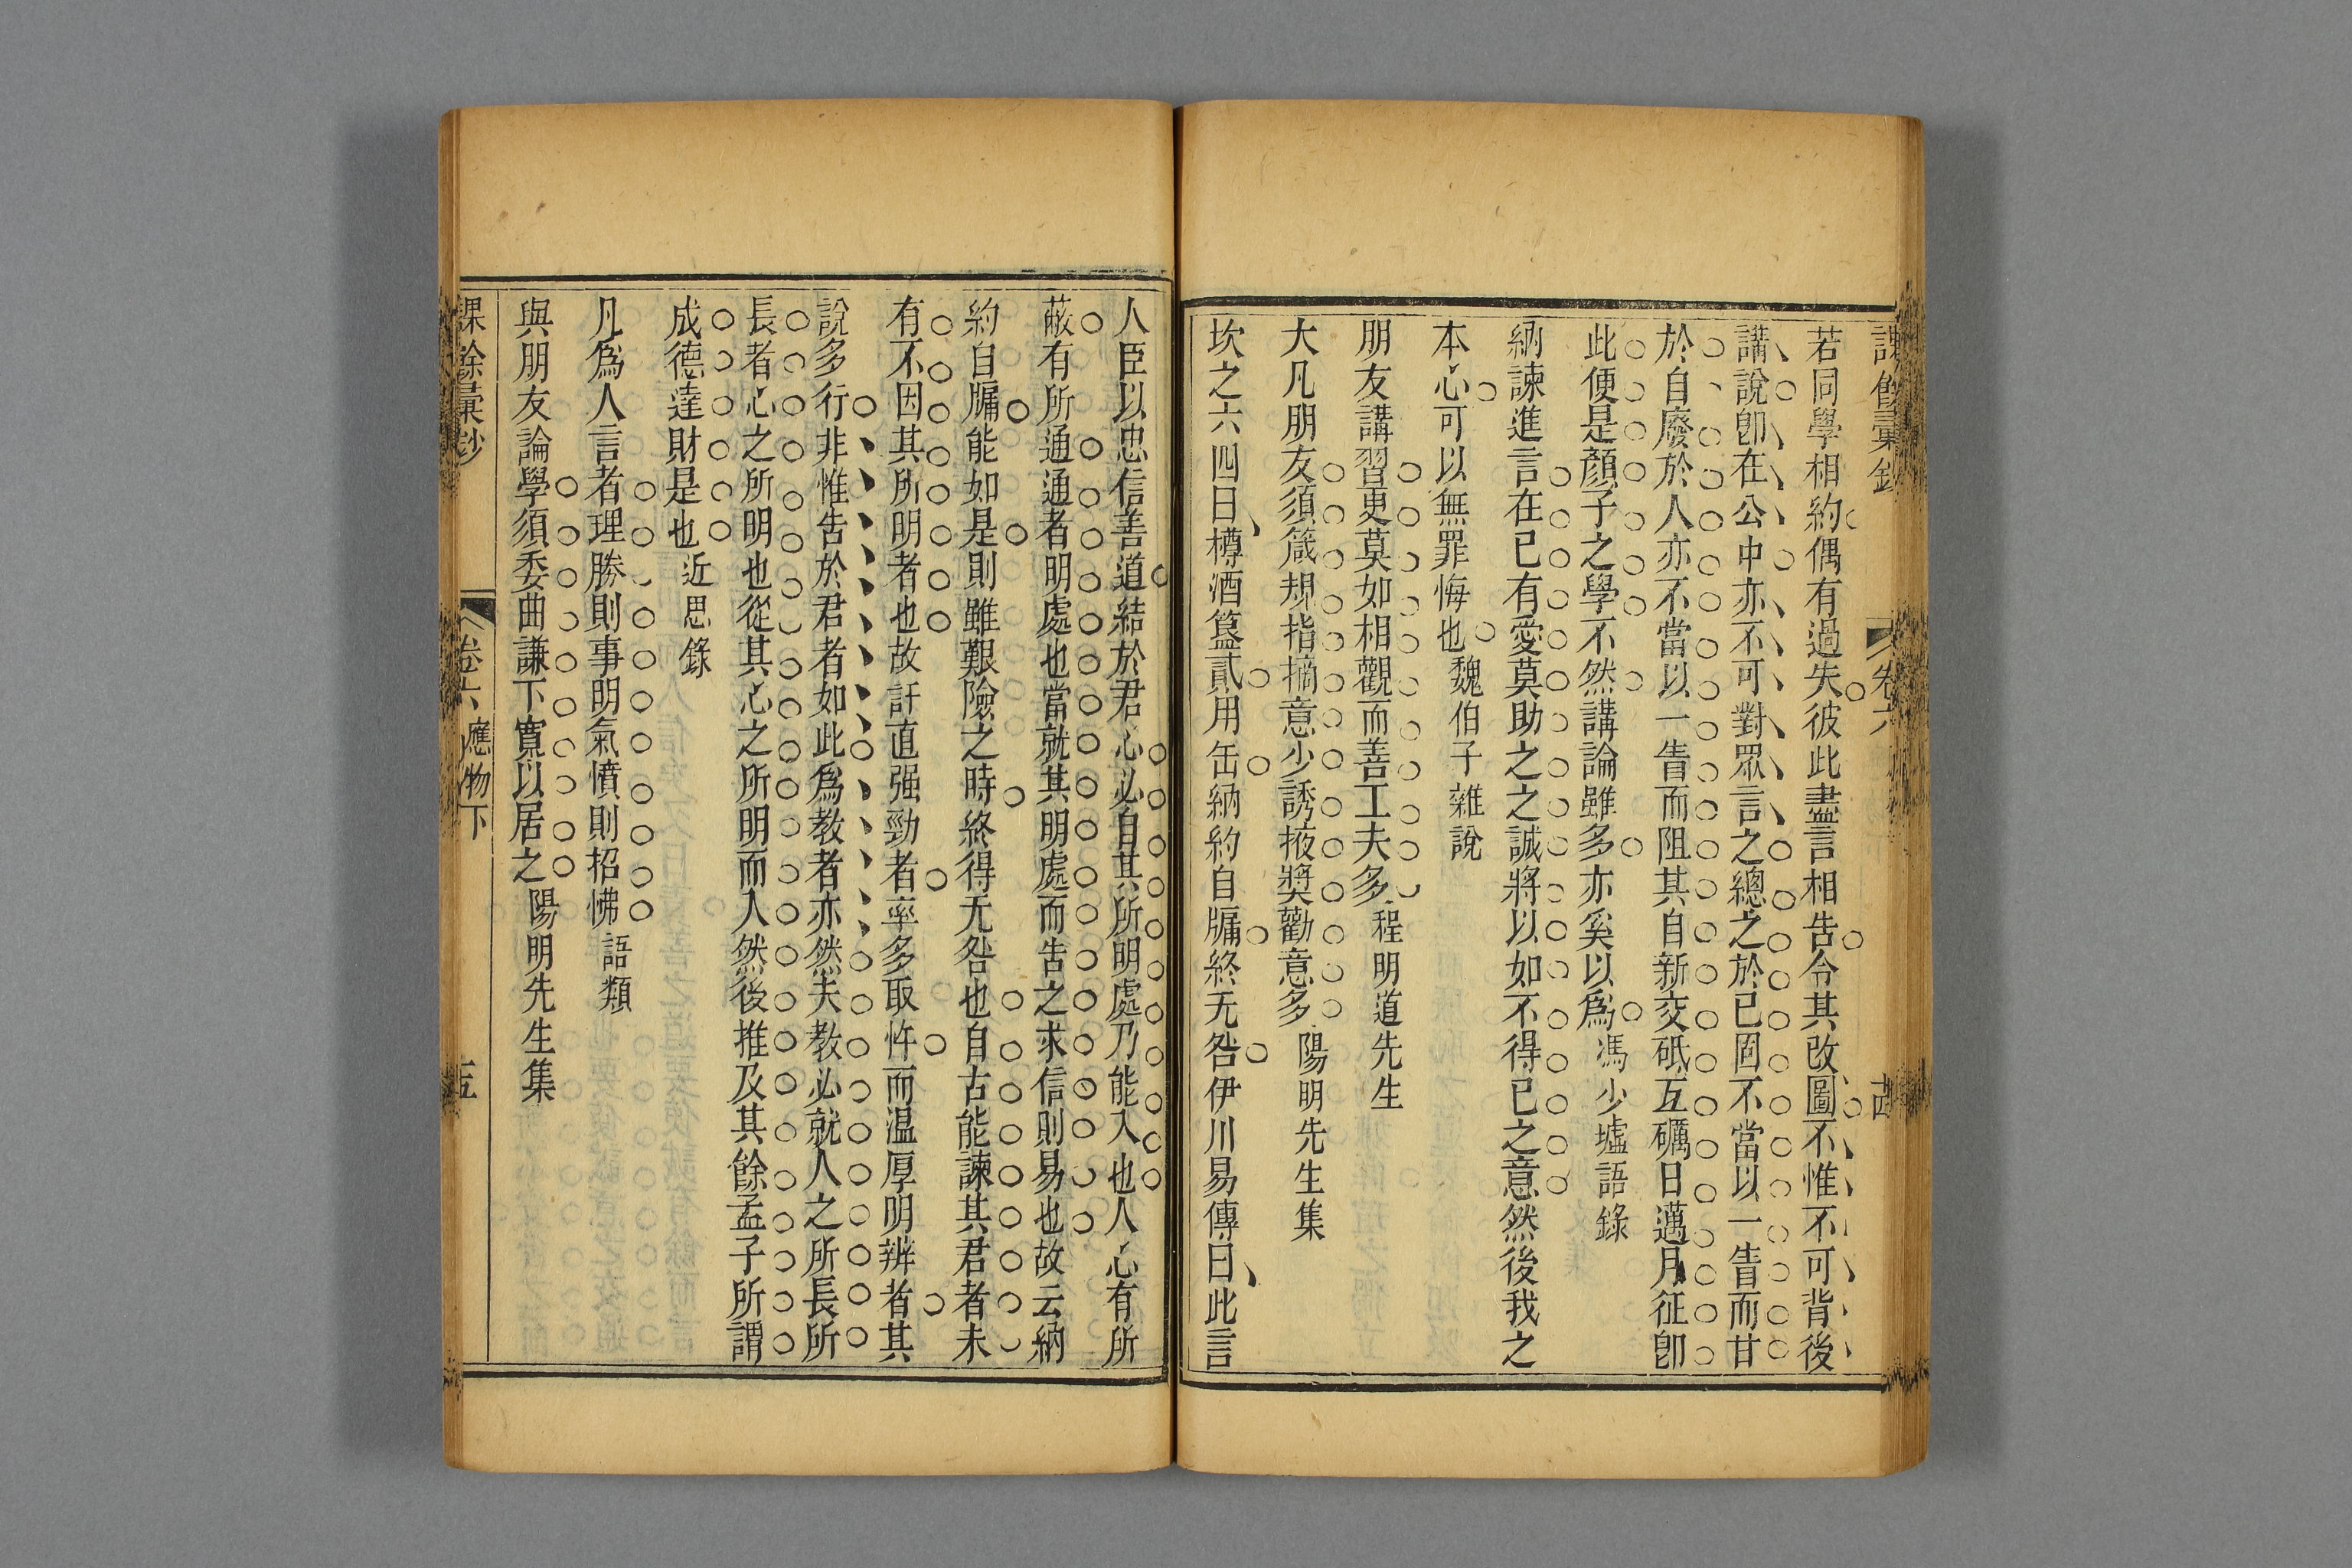 若同學相約偶有過失彼此盡言相告令其改圖不惟不可背後
講說卽在公中亦不可對眾言之總之於已固不當以一眚而甘
於自廢於人亦不當以一眚而阻其自新交砥互礪日邁月征卽
此便是顏子之學不然講論雖多亦奚以為馮少墟語錄
納諫進言在已有愛莫助之之誠將以如不得已之意然後我之
本心可以無罪悔也魏伯子雜說
朋友講習更莫如相觀而善工夫多程明道先生
大凡朋友須箴規指摘意少誘掖奬勸意多陽明先生集
坎之六四曰樽酒簋貳用缶納約自牖終无咎伊川易傳曰此言
人臣以忠信善道結於君心必自其所明處乃能入也人心有所
蔽有所通通者明處也當就其明處而告之求信則易也故云納
約自牖能如是則雖艱險之時終得无咎也自古能諫其君者未
有不因其所明者也故訐直强勁者率多取忤而温厚明辨者其
說多行非惟告於君者如此爲教者亦然夫教必就人之所長所
長者心之所明也從其心之所明而入然後推及其餘孟子所謂
成德達財是也近思錄
凡爲人言者理勝則事明氣憤則招怫語類
與朋友論學須委曲謙下寬以居之陽明先生集
課餘彙鈔 卷六 應物下